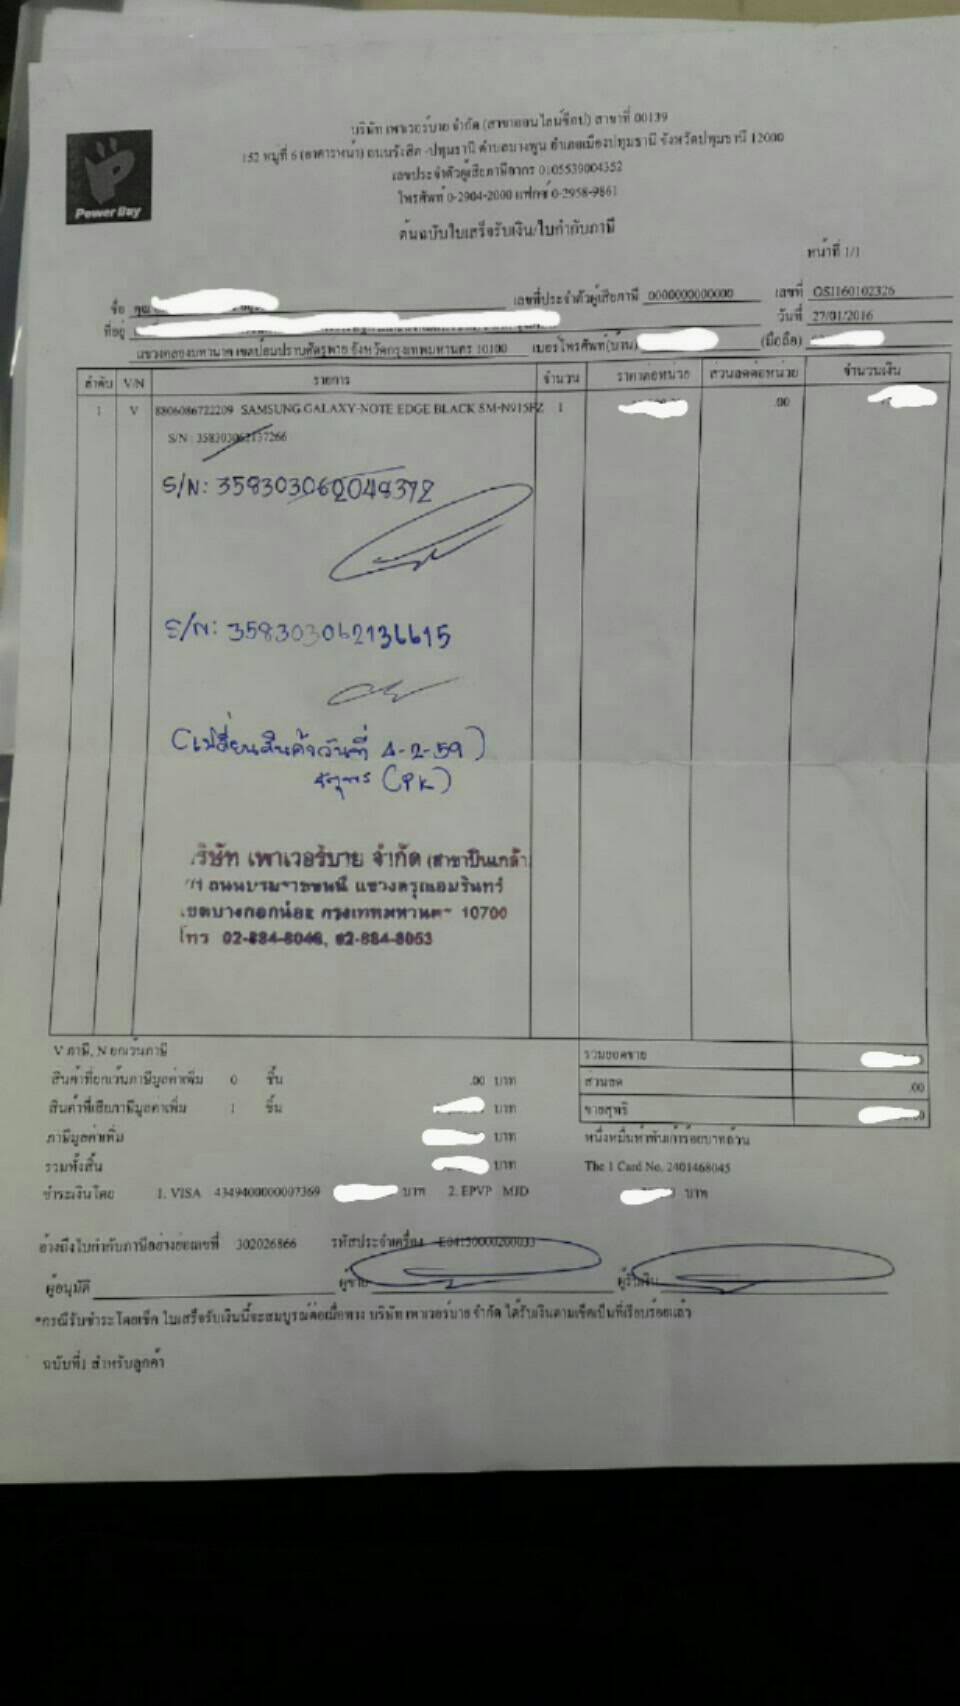 บริษัท เพาเวอร์บาย จำกัด (สาขาออนไลน์ช็อป) สาขาที่ 00139
152 หมู่ที่ 6 (อาคารหน้า) ถนนรังสิต-ปทุมธานี ตำบลบางพูน อำเภอเมืองปทุมธานี จังหวัดปทุมธานี 12000
เลขประจำตัวผู้เสียภาษีอากร 0105539004352
โทรศัพท์ 0-2904-2000 แฟกซ์ 0-2958-9861
Power Buy
ต้นฉบับใบเสร็จรับเงิน/ใบกำกับภาษี
หน้าที่ 1/1
ชื่อ คุณ เลขที่ประจำตัวผู้เสียภาษี 0000000000000 เลขที่ OSI160102326
ที่อยู่ วันที่ 27/01/2016
แขวงคลองมหานาค เขตป้อมปราบศัตรูพ่าย จังหวัดกรุงเทพมหานคร 10100 เบอร์โทรศัพท์(บ้าน) (มือถือ)
ลำดับ V/N รายการ จำนวน ราคาต่อหน่วย ส่วนลดต่อหน่วย จำนวนเงิน
1 V 8806086722209 SAMSUNG GALAXY-NOTE EDGE BLACK SM-N915FZ 1 .00
S/N : 358303062137266
S/N: 358303062048372
S/N: 358303062136615
(เปลี่ยนสินค้าวันที่ 4-2-59)
(PK)
บริษัท เพาเวอร์บาย จำกัด (สาขาปิ่นเกล้า)
ถนนบรมราชชนนี แขวงอรุณอมรินทร์
เขตบางกอกน้อย กรุงเทพมหานคร 10700
โทร 02-884-8046, 02-884-8053
V ภาษี, N ยกเว้นภาษี รวมยอดขาย
สินค้าที่ยกเว้นภาษีมูลค่าเพิ่ม 0 ชิ้น .00 บาท ส่วนลด .00
สินค้าที่เสียภาษีมูลค่าเพิ่ม 1 ชิ้น บาท ขายสุทธิ
ภาษีมูลค่าเพิ่ม บาท หนึ่งหมื่นห้าพันเก้าร้อยบาทถ้วน
รวมทั้งสิ้น บาท The 1 Card No. 2401468045
ชำระเงินโดย 1. VISA 4349400000007369 บาท 2. EPVP MJD บาท
อ้างถึงใบกำกับภาษีอย่างย่อเลขที่ 302026866 รหัสประจำเครื่อง E04150000200033
ผู้อนุมัติ ผู้ขาย ผู้รับเงิน
*กรณีรับชำระโดยเช็ค ใบเสร็จรับเงินนี้จะสมบูรณ์ต่อเมื่อทาง บริษัท เพาเวอร์บาย จำกัด ได้รับเงินตามเช็คเป็นที่เรียบร้อยแล้ว
ฉบับที่1 สำหรับลูกค้า